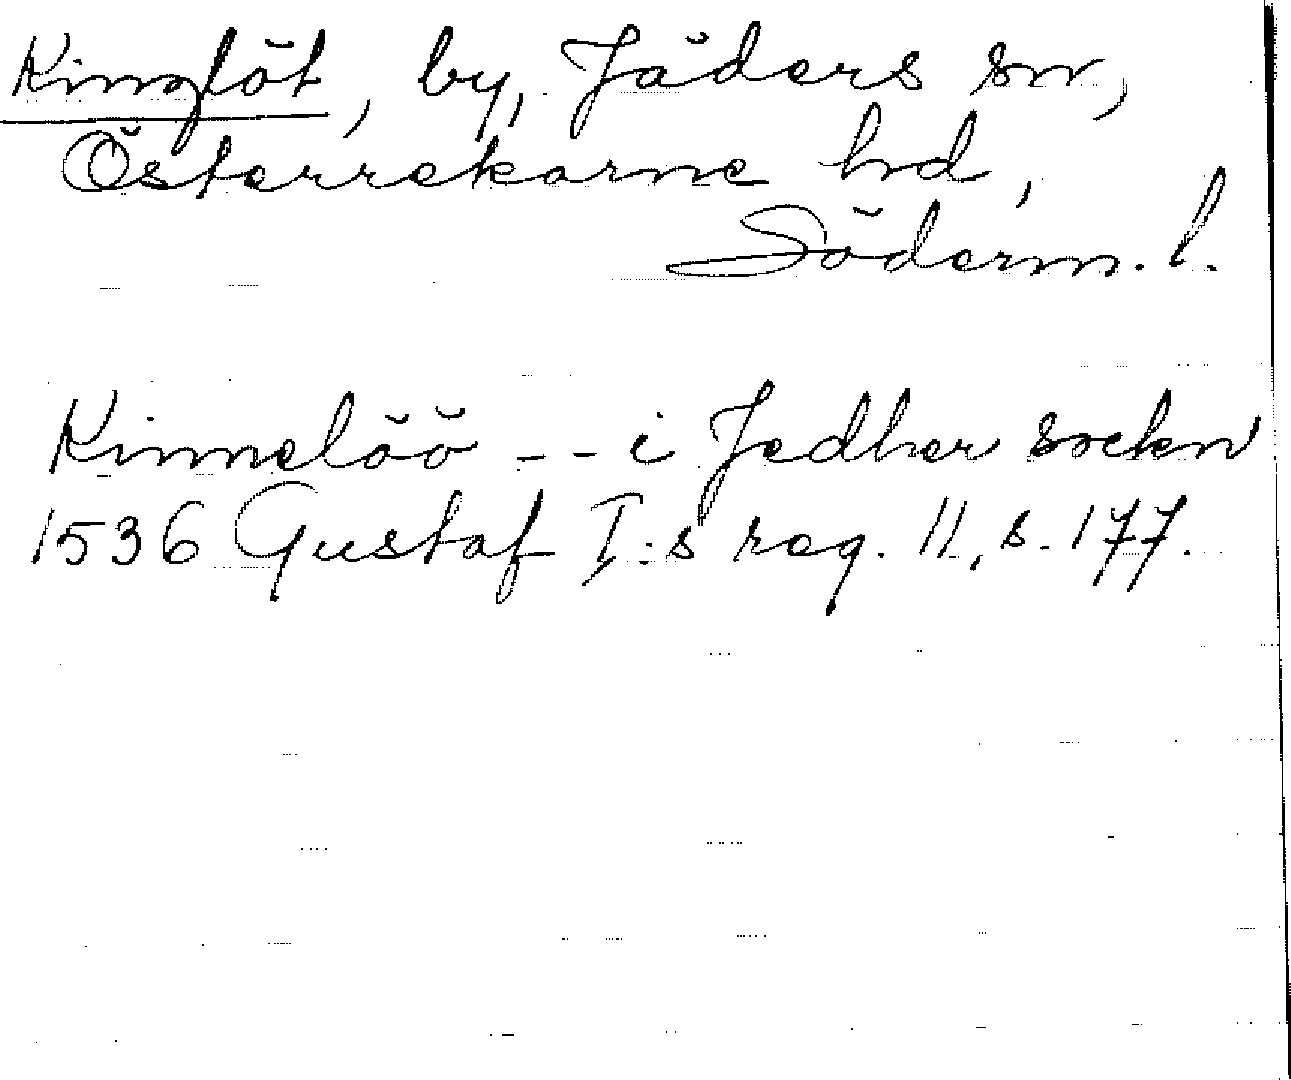 Kinglöt, by, Jäders sn,
Österrekarne hd,
Söderm. l.
Kinnelöö -- i Jedher sockn
1536 Gustaf I:s reg. 11, s. 177.